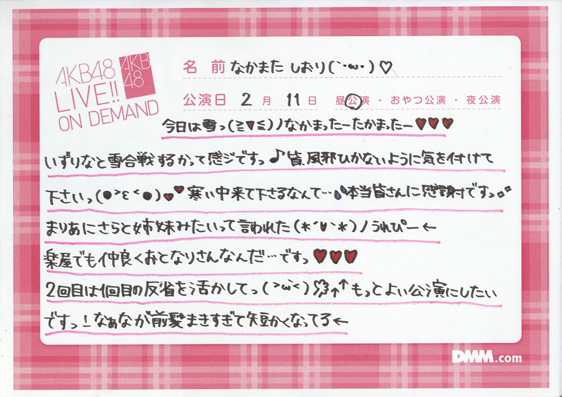 AKB48
LIVE!!
ON DEMAND
AKB
48
名 前 なかまた しおり(`･ω･)♡
公演日 2月 11日 昼公演・おやつ公演・夜公演
今日は雪っ(≧▼≦)ノなかまったーたかまったー♥♥♥
いずりなと雪合戦するかって感じですっ♪皆、風邪ひかないように気を付けて
下さいっ(●>ε<●)♥♥寒い中来て下さるなんて…本当皆さんに感謝ですっ
まりあにさらと姉妹みたいって言われた(*'∀'*)ノうれぴー←
楽屋でも仲良くおとなりさんなんだ…ですっ♥♥♥
2回目は1回目の反省を活かしてっ(>ω<)↑↑もっとよい公演にしたい
ですっ!なぁなが前髪まきすぎて矢
かくなってる←
DMM.com